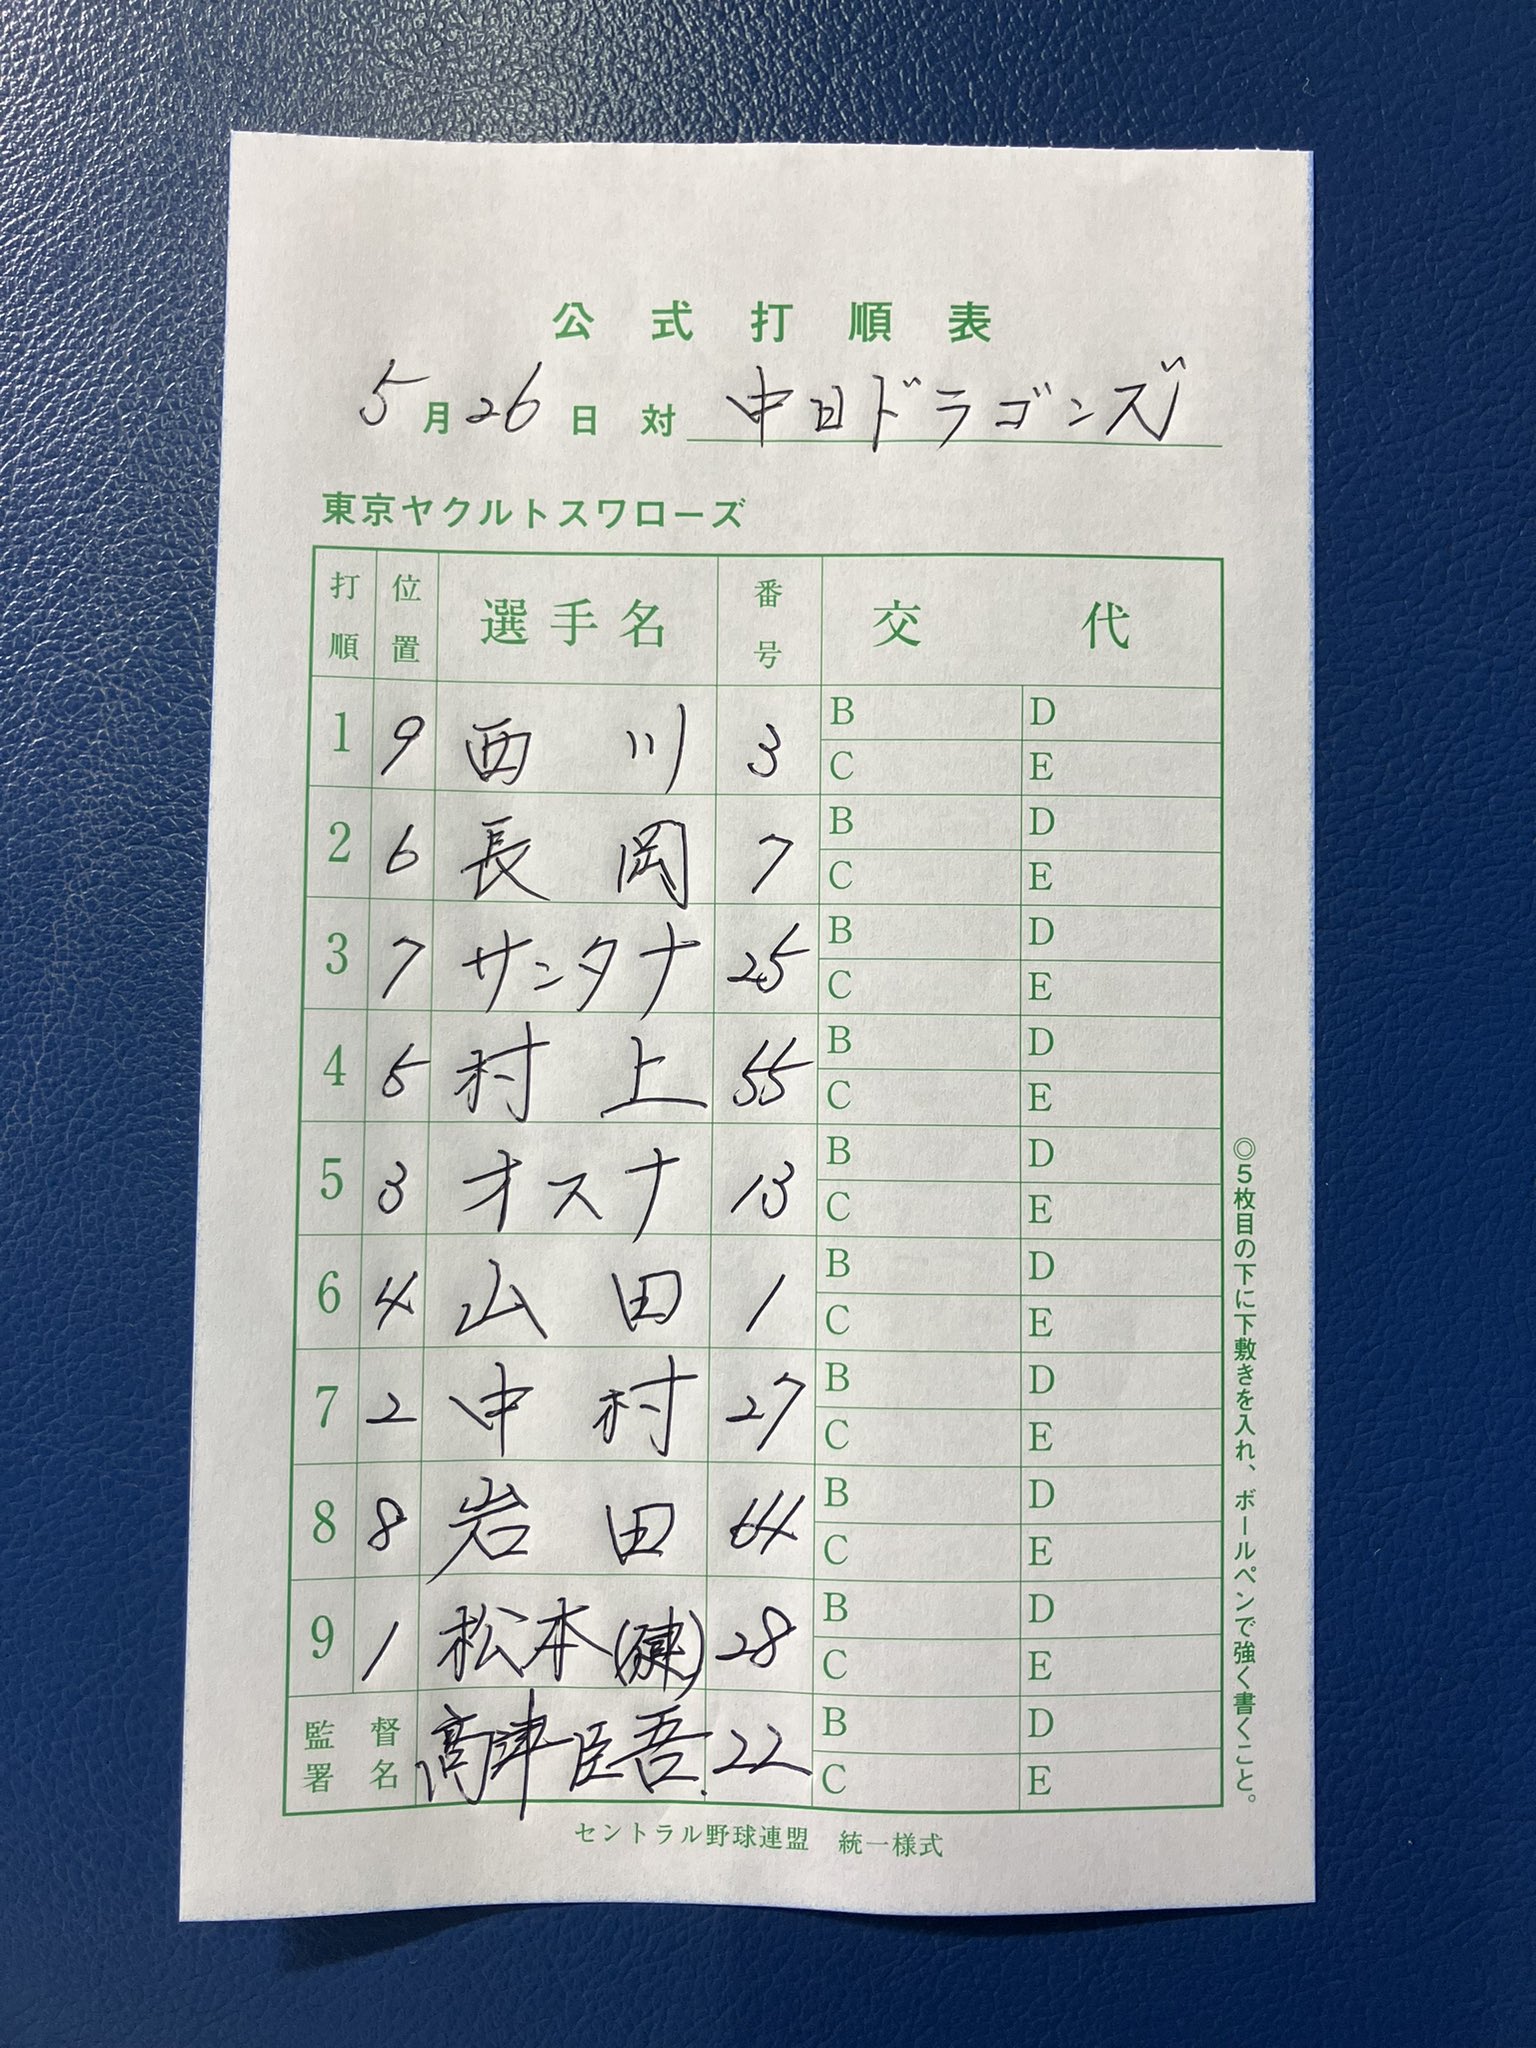 公式打順表
5月26日 対 中日ドラゴンズ
東京ヤクルトスワローズ
打順 位置 選手名 番号 交代
1 9 西川 3 B D
C E
2 6 長岡 7 B D
C E
3 7 サンタナ 25 B D
C E
4 5 村上 55 B D
C E
5 3 オスナ 13 B D
C E
6 4 山田 1 B D
C E
7 2 中村 27 B D
C E
8 8 岩田 64 B D
C E
9 1 松本(健) 28 B D
C E
監督署名 髙津臣吾. 22 B D
C E
セントラル野球連盟 統一様式
◎5枚目の下に下敷きを入れ、ボールペンで強く書くこと。